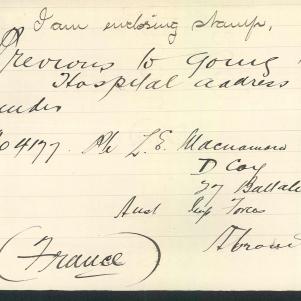 I am enclosing stamp.
Previous to going
Hospital address
under
04177. Pte L. E. Macnamara
D Coy
27 Battali
Aust Imp Forces
Abroad
(France)